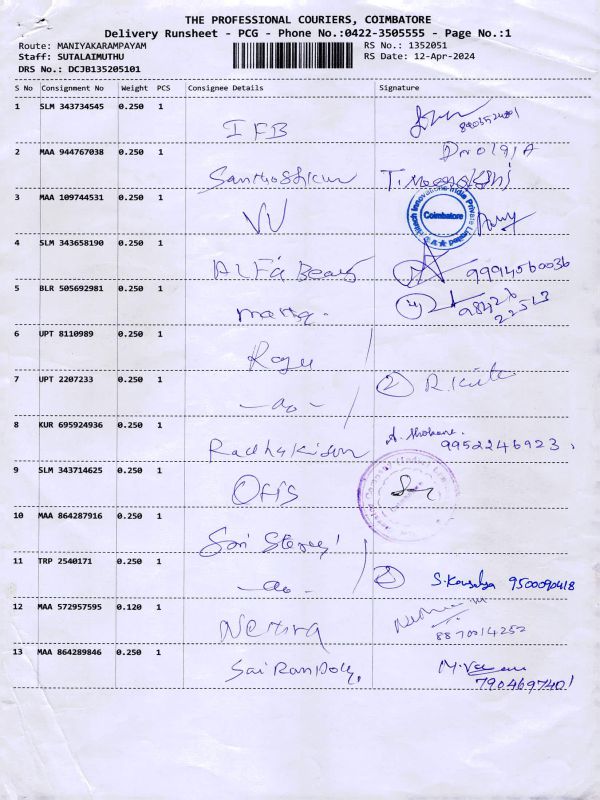 THE PROFESSIONAL COURIERS, COIMBATORE
Delivery Runsheet - PCG - Phone No.:0422-3505555 - Page No.:1
Route: MANIYAKARAMPAYAM RS No.: 1352051
Staff: SUTALAIMUTHU RS Date: 12-Apr-2024
DRS No.: DCJB135205101
S No Consignment No Weight PCS Consignee Details Signature
1 SLM 343734545 0.250 1 IFB
2 MAA 944767038 0.250 1 Santhoshkum
3 MAA 109744531 0.250 1 VV Coimbatore
4 SLM 343658190 0.250 1 ALFa 9994560036
5 BLR 505692981 0.250 1 98426
22513
6 UPT 8110989 0.250 1
7 UPT 2207233 0.250 1 -do- 2
8 KUR 695924936 0.250 1 Radhakisan 9952246923
9 SLM 343714625 0.250 1
10 MAA 864287916 0.250 1 Sri
11 TRP 2540171 0.250 1 -do- 2 S. Kousalya 9500090418
12 MAA 572957595 0.120 1 Nethra 8870014252
13 MAA 864289846 0.250 1 7904697401